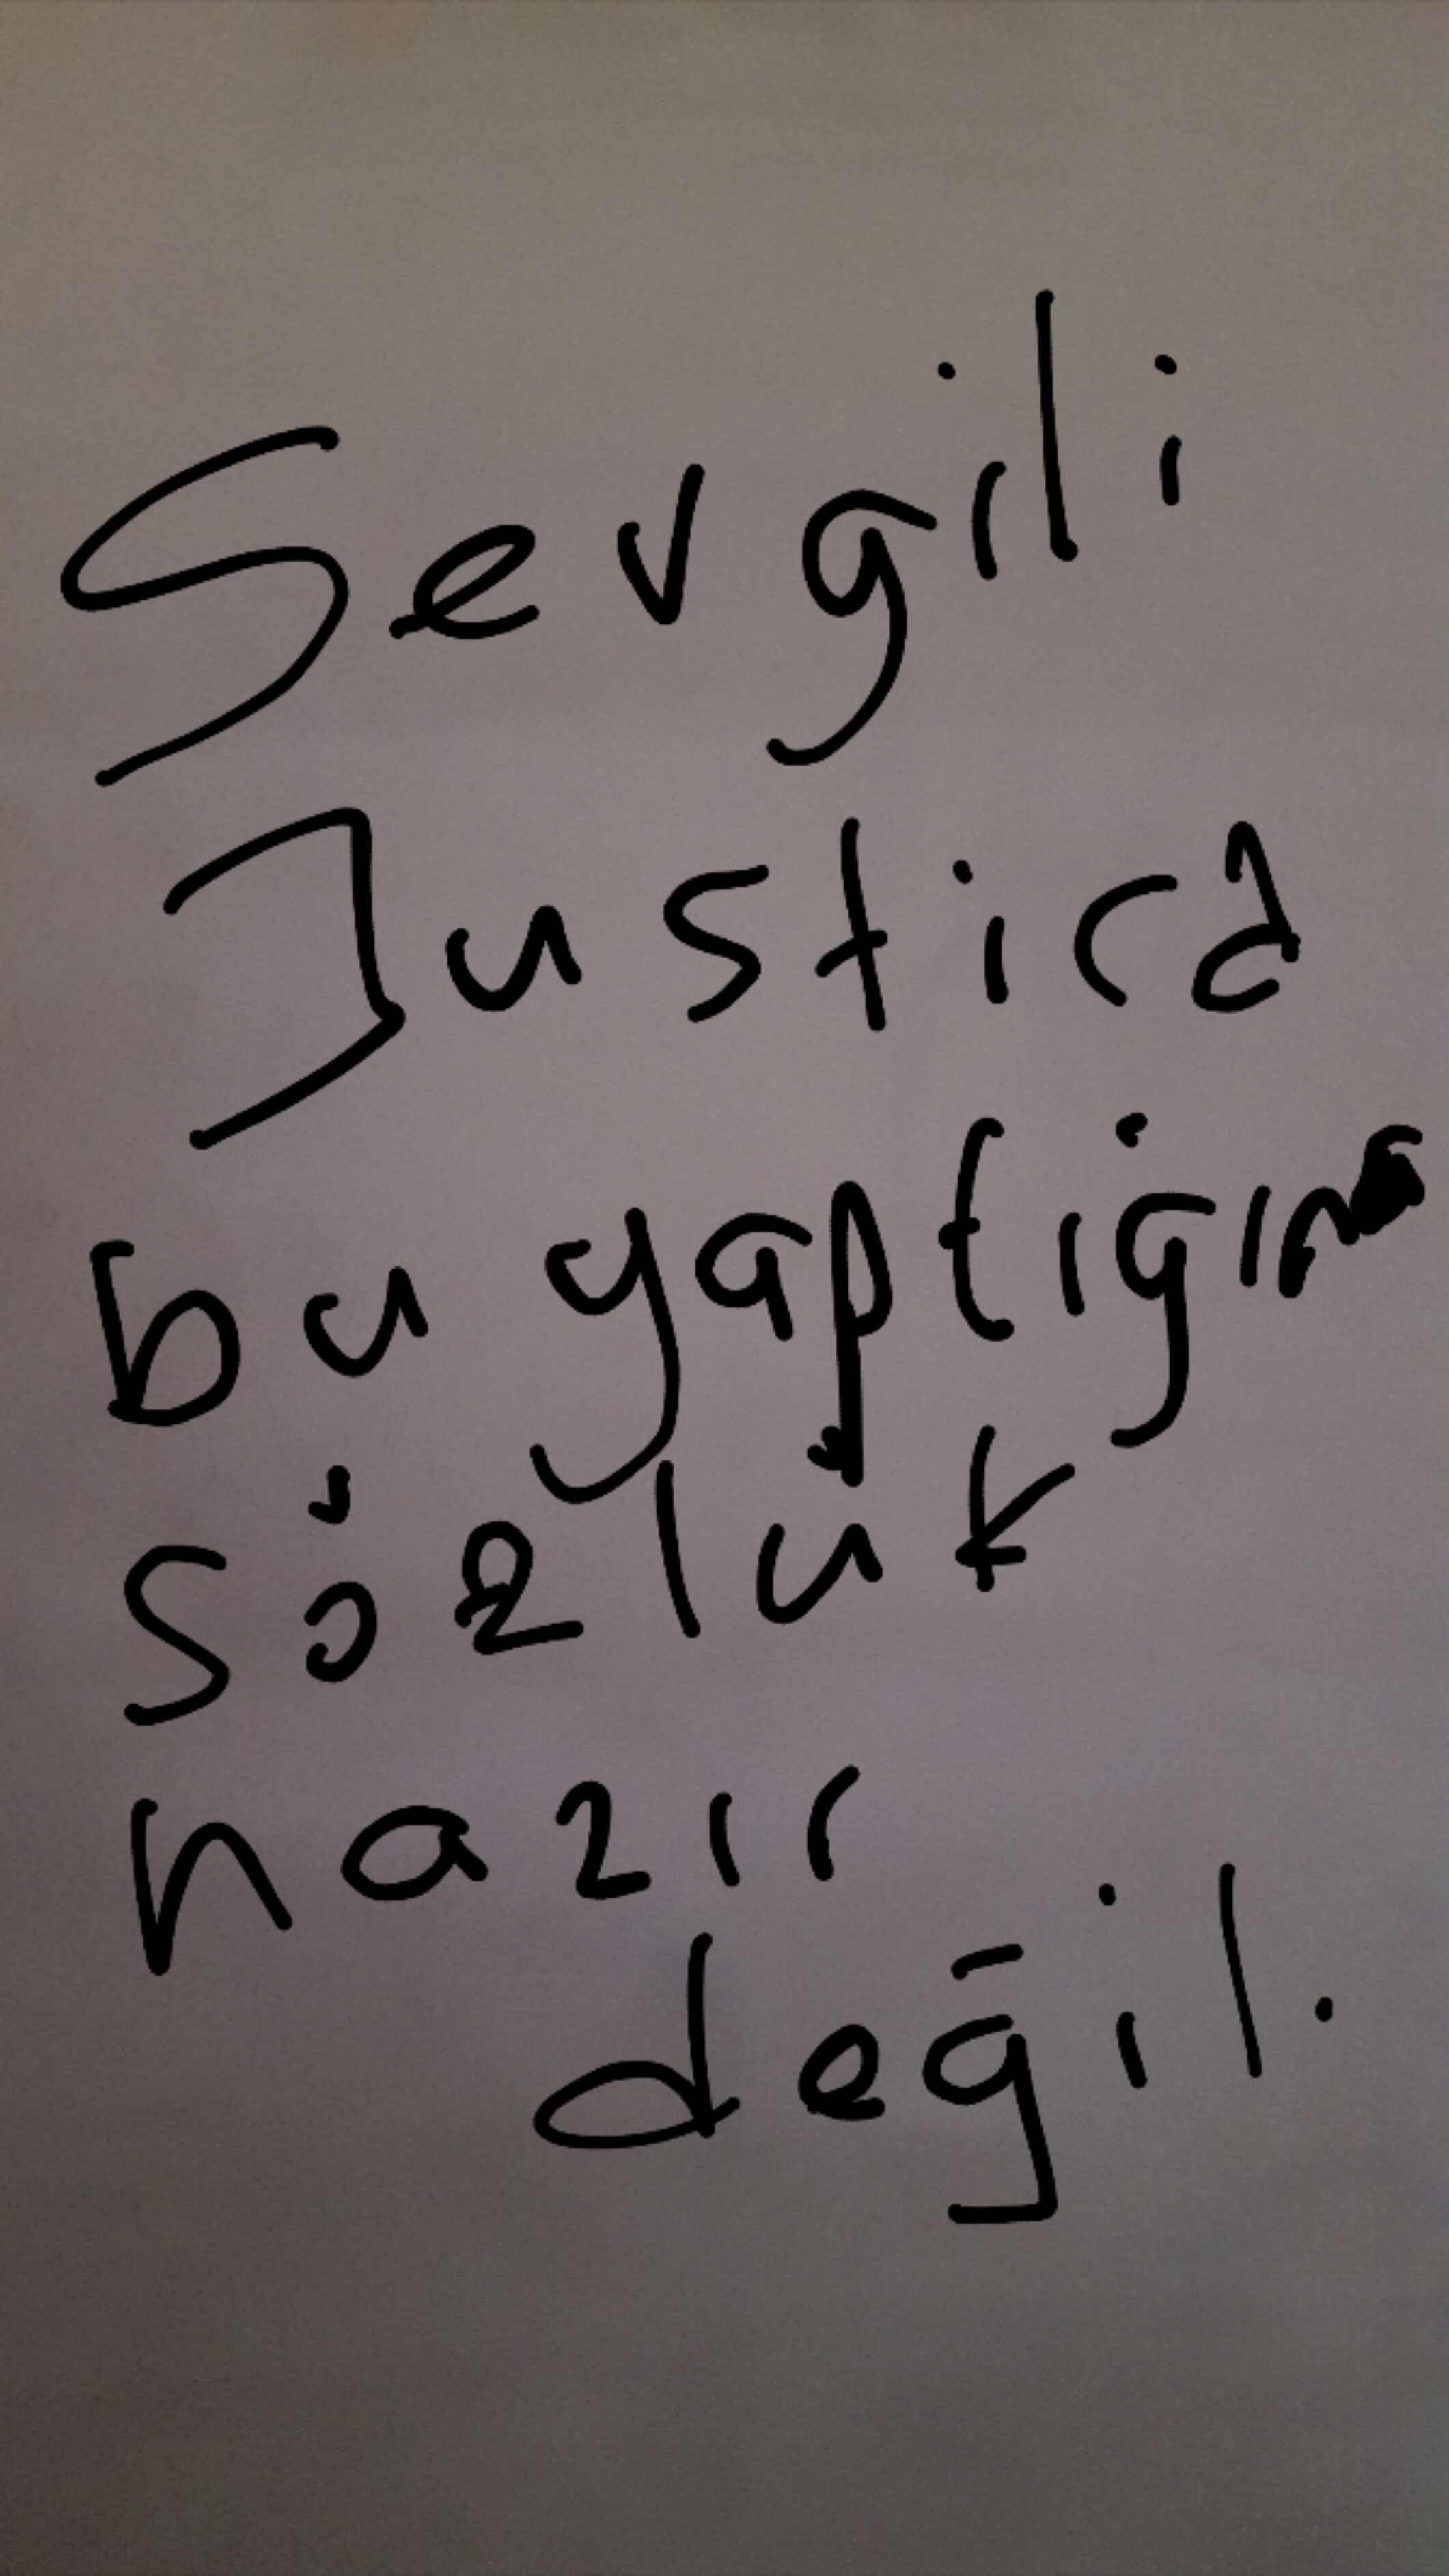 Sevgili
Justica
bu yaptiġım
sözluk
hazır
değil.